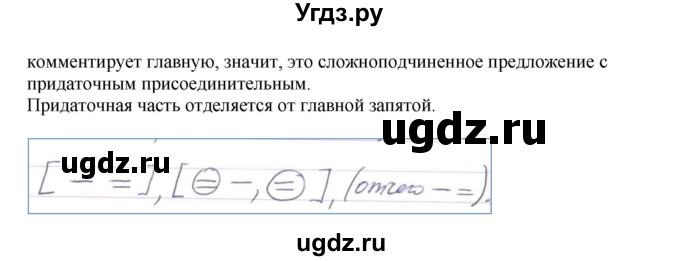 Угдз.ру
комментирует главную, значит, это сложноподчиненное предложение с
придаточным присоединительным.
Придаточная часть отделяется от главной запятой.
ugdz.ru
ugdz.ru
ugdz.ru
[ — = ], [ (=) —, (=) ], (отчего — = ).
ugdz.ru